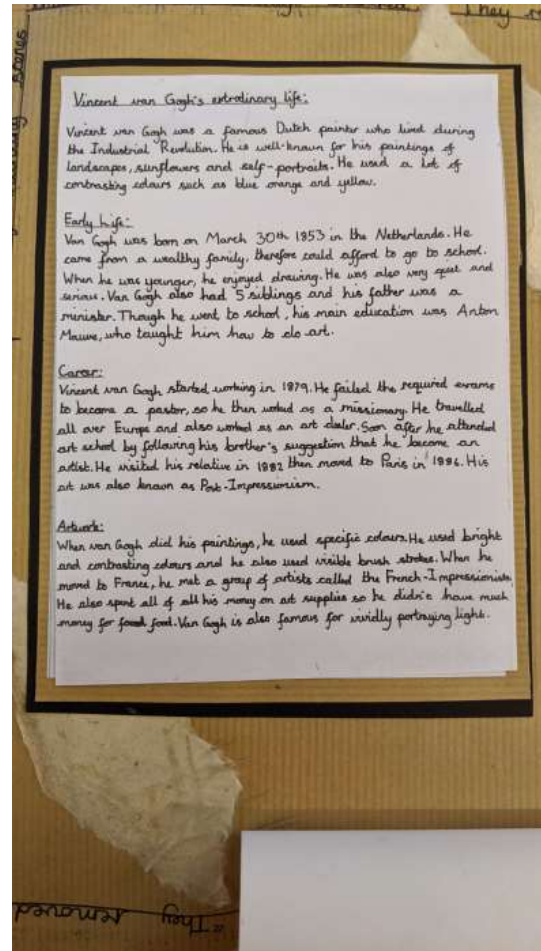 They
scenes
Vincent van Gogh's extrodinary life:
Vincent van Gogh was a famous Dutch painter who lived during
the Industrial Revolution. He is well-known for his paintings of
landscapes, sunflowers and self-portraits. He used a lot of
contrasting colours such as blue orange and yellow.
Early Life:
Van Gogh was born on March 30th 1853 in the Netherlands. He
came from a wealthy family, therefore could afford to go to school.
When he was younger, he enjoyed drawing. He was also very quiet and
serious. Van Gogh also had 5 siblings and his father was a
minister. Though he went to school, his main education was Anton
Mauve, who taught him how to do art.
Career:
Vincent van Gogh started working in 1879. He failed the required exams
to become a pastor, so he then worked as a missionary. He travelled
all over Europe and also worked as an art dealer. Soon after he attended
art school by following his brother's suggestion that he become an
artist. He visited his relative in 1882 then moved to Paris in 1886. His
art was also known as Post-Impressionism.
Artwork:
When van Gogh did his paintings, he used specific colours. He used bright
and contrasting colours and he also used visible brush strokes. When he
moved to France, he met a group of artists called the French-Impressionists.
He also spent all of all his money on art supplies so he didn't have much
money for food. Van Gogh is also famous for vividly portraying light.
"They removed